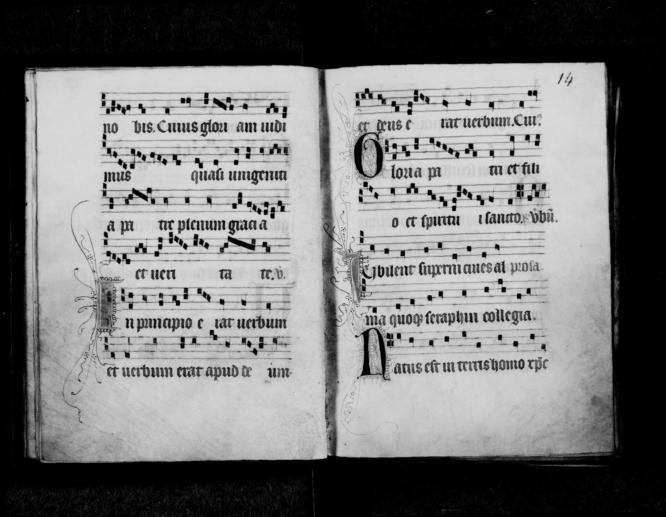 no bis. Cuius glori am uidi
mus quasi unigeniti
a pa tre plenum graci a
et ueri ta te. v.
In principio e rat uerbum
et uerbum erat apud de um
14
et deus e rat uerbum. Cui9.
Gloria pa tri et fili
o et spiritu i sancto. Vbũ.
Iubilent superni ciues al prosa
ma quoq3 seraphin collegia.
Natus est in terris homo xp̄c